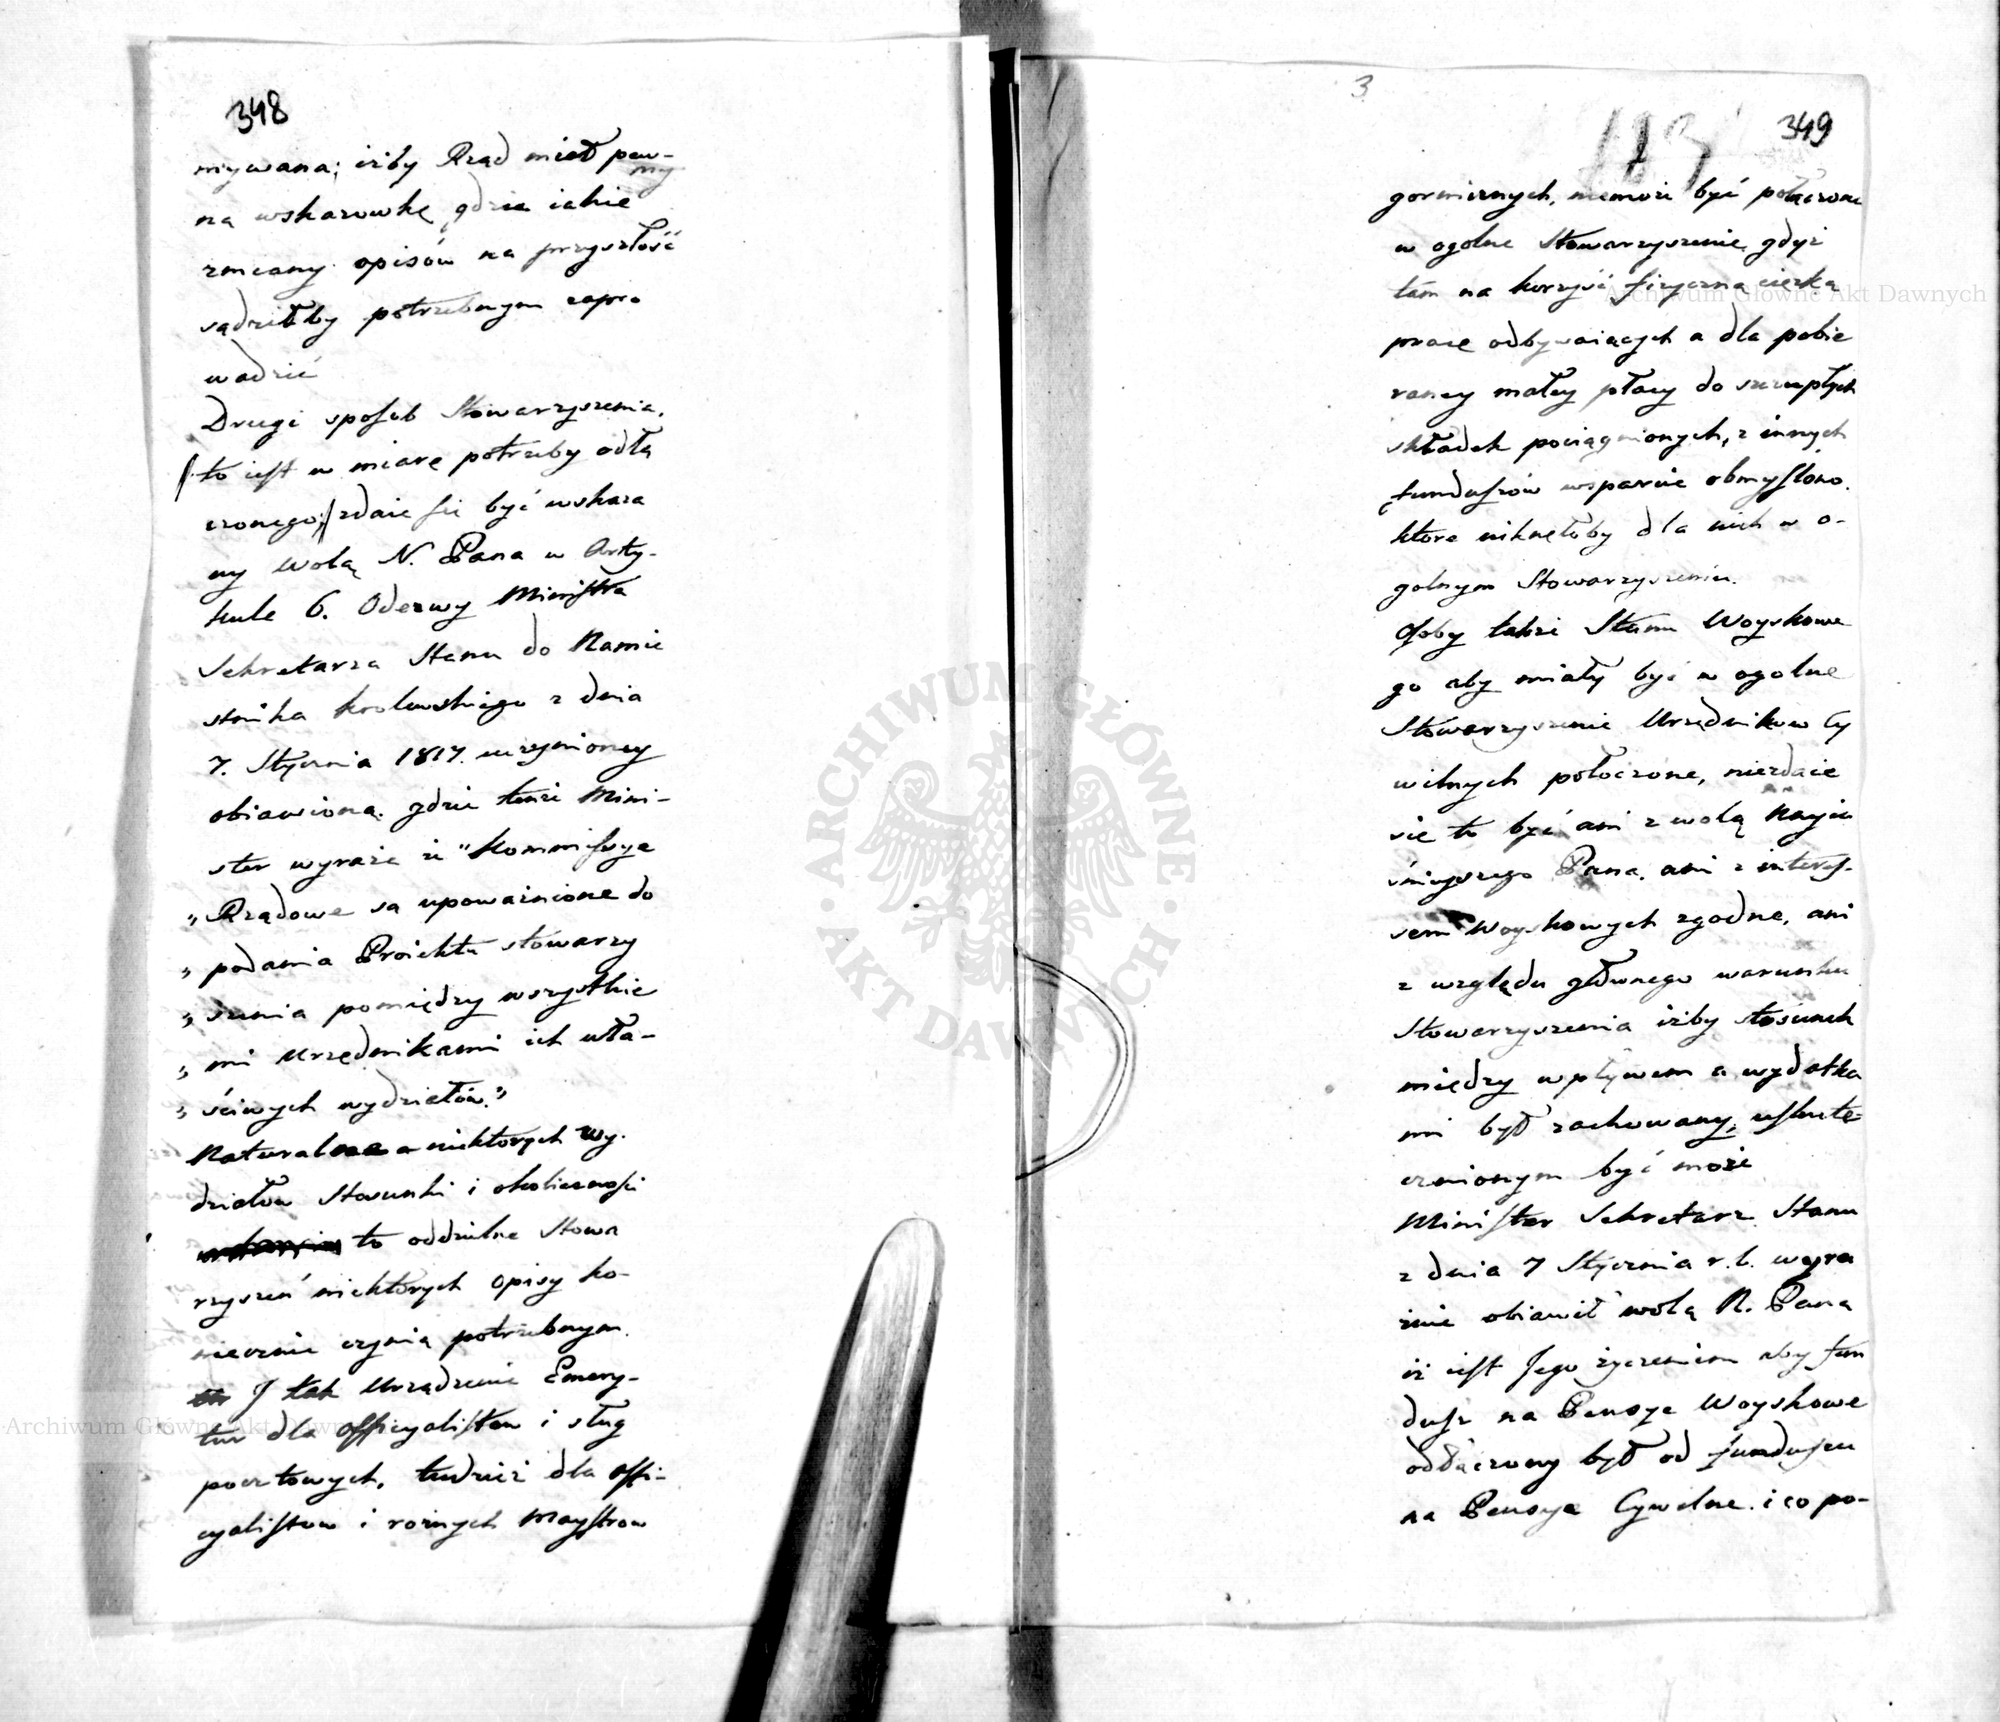 348
mywana; iżby Rząd miał pew-
ny
na wskazowkę gdzie iakie
zmiany opisów na przyszłość
sądziłby potrzebnym zapro
wadzić
Drugi sposob Stowarzyszenia,
to iest w miarę potrzeby odłą
czonego, zdaie się być wskaza
ny wolą N. Pana w Arty-
kule 6. Odezwy Ministra
Sekretarza Stanu do Namie
stnika Krolewskiego z dnia
7. Stycznia 1817. uczynioney
obiawioną. gdzie tenże Mini-
ster wyraża że "Kommissye
„ Rządowe są upoważnione do
„ podania Proiektu stowarzy
„ szenia pomiędzy wszystkie
„ mi Urzędnikami ich wła-
„ ściwych wydziałów."
Naturalne a niektorych wy-
działów Stosunki i okoliczności
to oddzielne Stowa
rzyszeń niektorych opisy ko-
niecznie czynią potrzebnym.
I tak Urządzenie Emery-
tur dla officyalistow i sług
pocztowych, tudzież dla offi-
cyalistow i rożnych Maystrow
3
113
349
gorniczych, niemoże być połączone
w ogolne Stowarzyszenie gdyż
tam na korzyść fizyczną ciężką
pracę odbywaiących a dla pobie
raney małey płacy do szczupłych
składek pociągnionych, z innych
funduszów wsparcie obmyślono.
ktore niknęłoby dla nich w o-
golnym Stowarzyszeniu.
Osoby także Stanu Woyskowe
go aby miały być w ogolne
Stowarzyszenie Urzędnikow Cy
wilnych połączone, niezdaie
się to być ani z wolą Nayia
śnieyszego Pana, ani z interes-
sem Woyskowych zgodne, ani
z względu głównego warunku
Stowarzyszenia iżby stosunek
między wpływem a wydatka
mi był zachowany, uskute-
cznionym być może
Minister Sekretarz Stanu
z dnia 7 Stycznia r. b. wyra
źnie obiawił wolą N. Pana
iż iest Jego życzeniem aby fun
dusz na Pensye Woyskowe
odłączony był od funduszu
na Pensye Cywilne. i co po-
Archiwum Główne Akt Dawnych
Archiwum Główne Akt Dawnych
ARCHIWUM GŁÓWNE · AKT DAWNYCH ·